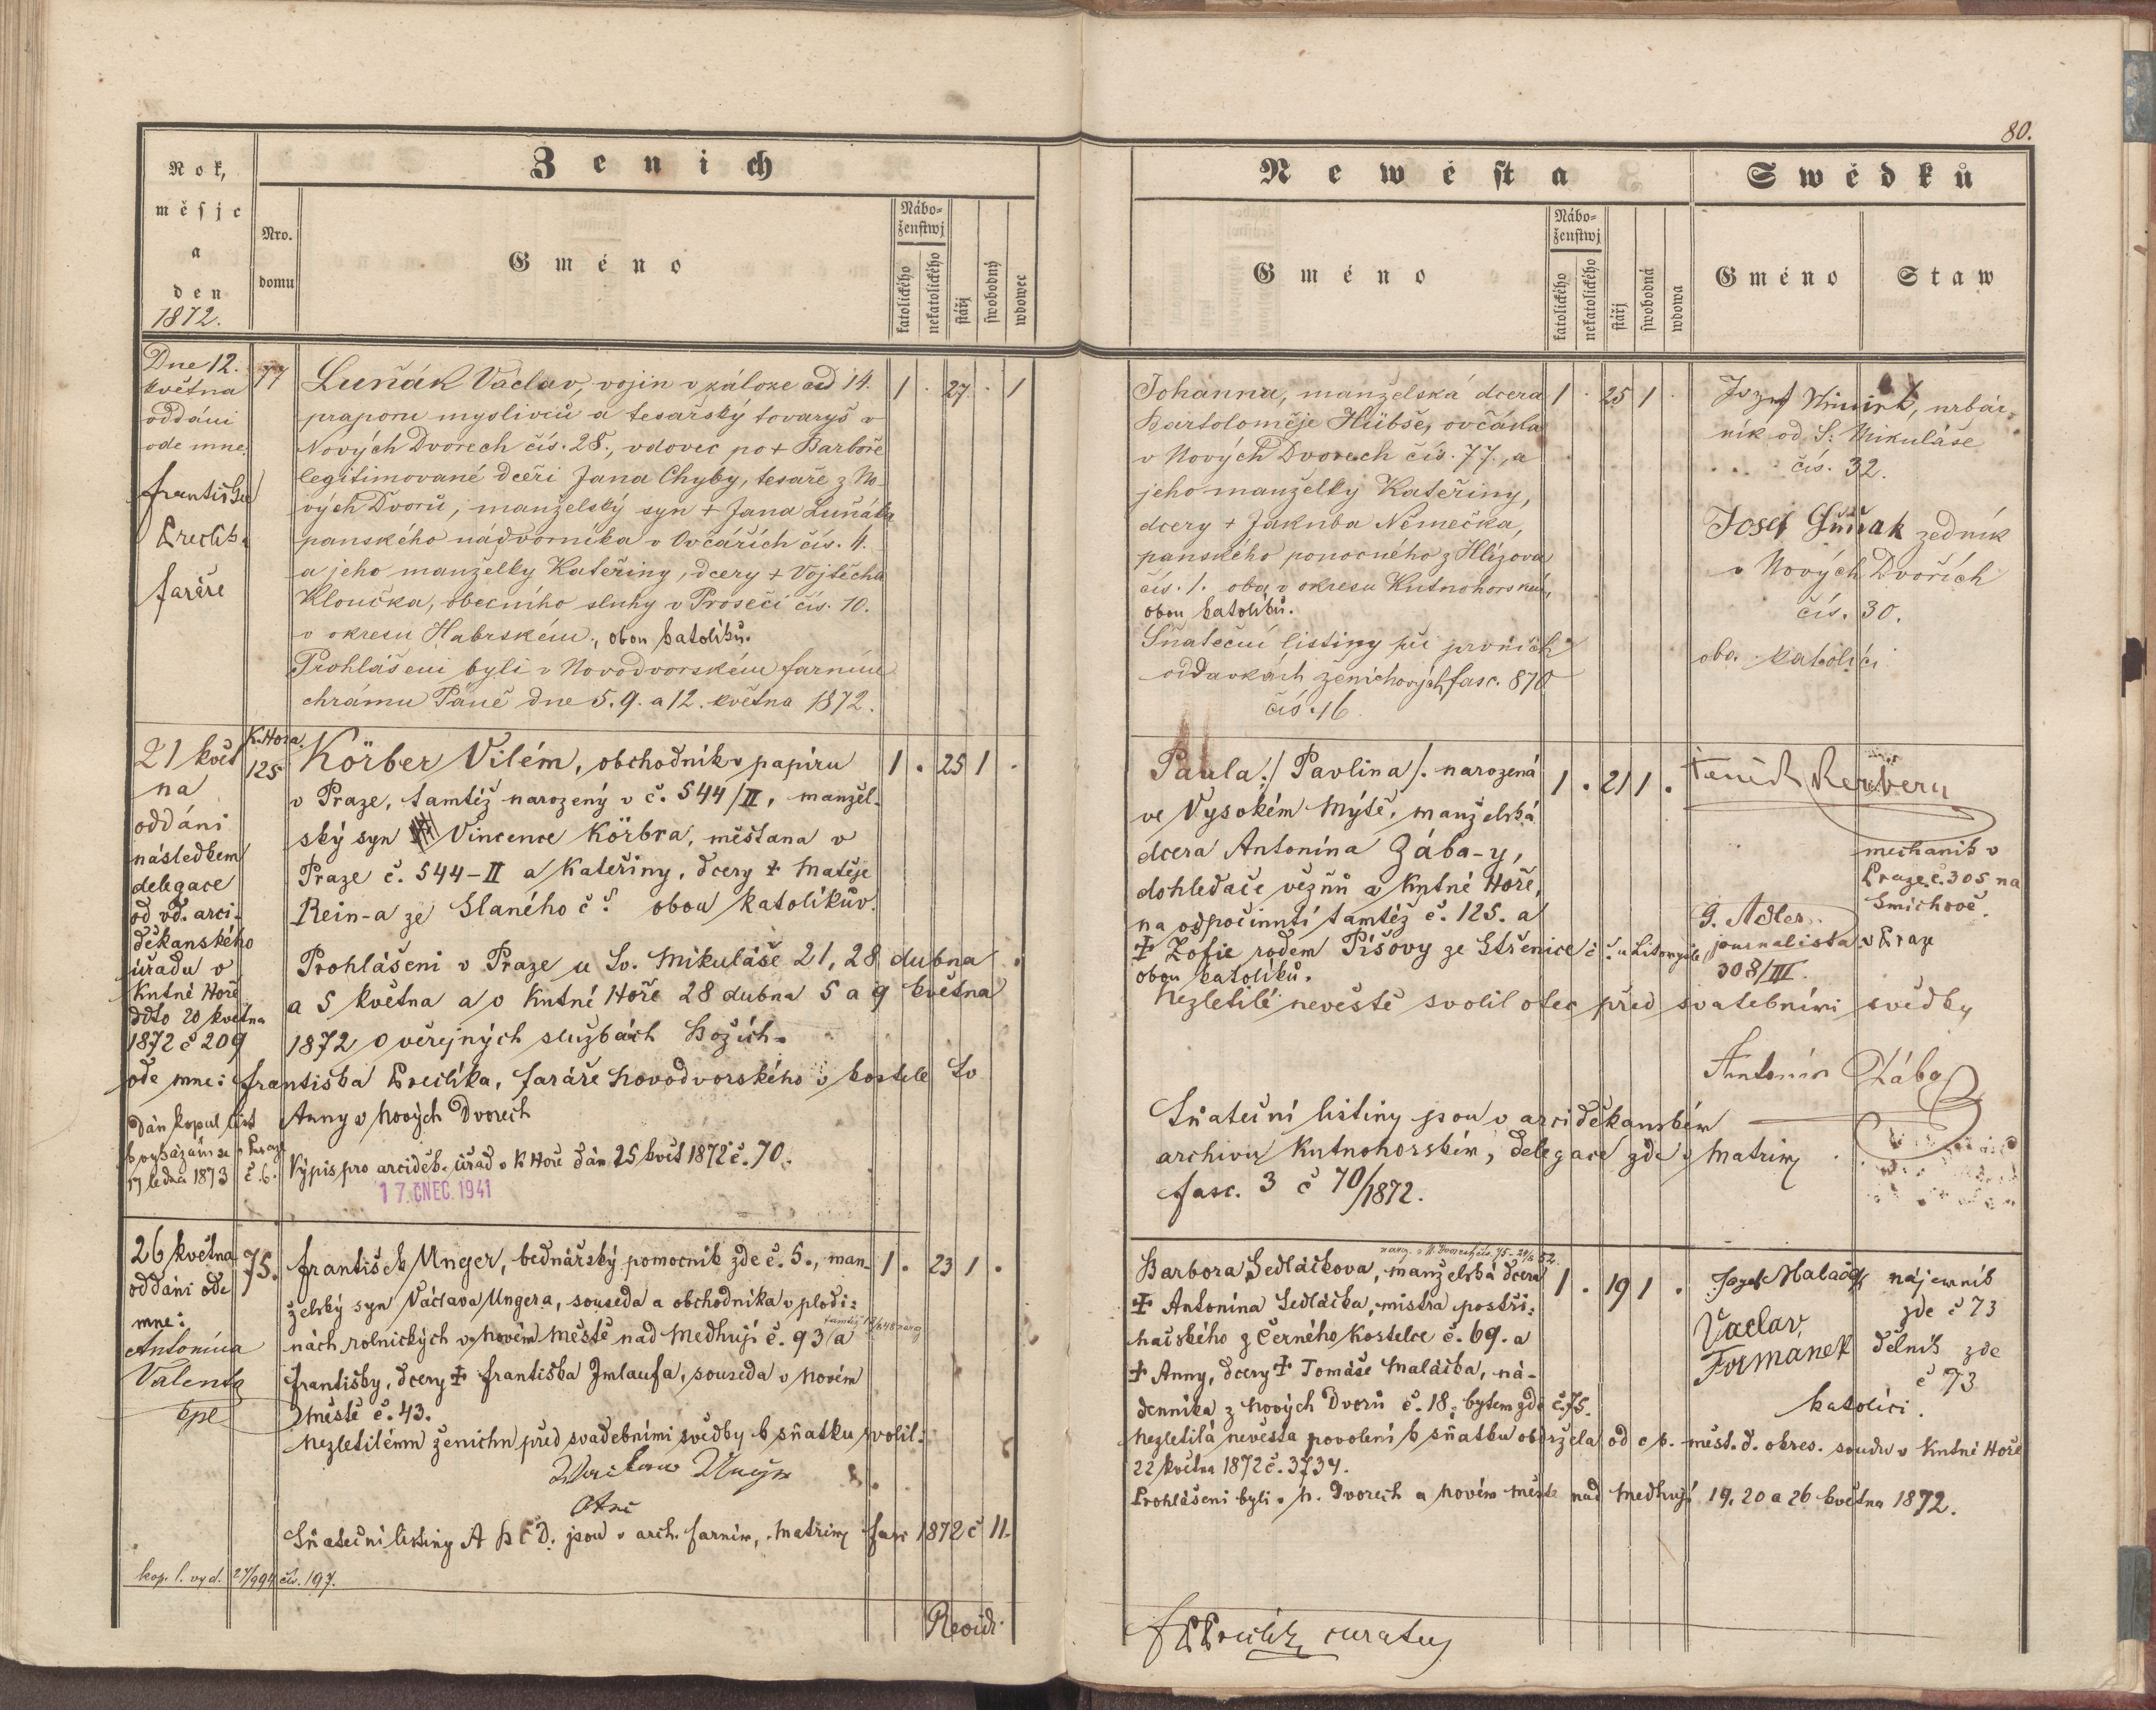 80.
Rok,
měsjc
a
den
1872.
Nro.
domu
Ženich
Gméno
Nábo=
ženstwj
katolického
nekatolického
stářj
swobodný
wdowec
Newěsta
Gméno
Nábo=
ženstwj
katolického
nekatolického
stářj
swobodná
wdowa
Swědků
Gméno
Staw
Dne 12.
května
oddáni
ode mne
faráře
77
Luňák Václav, vojín v záloze od 14.
praporu myslivců a tesařský tovaryš v
Nových Dvorech čís. 28., vdovec po + Barboře
legitimované dceři Jana Chyby, tesaře z No-
vých Dvorů, manželský syn + Jana Luňáka
panského nádvorníka v Ovčářích čís. 4.
a jeho manželky Kateřiny, dcery + Vojtěcha
Kloučka, obecního sluhy v Proseči čís. 10.
v okresu Habrském, obou katolíků.
Prohlášeni byli v Novodvorském farním
chrámu Páně dne 5. 9. a 12. května 1872.
1 . 27 . 1
Johanna, manželská dcera
Bartoloměje Hübše, ovčáka
v Nových Dvorech čís. 77., a
jeho manželky Kateřiny,
dcery + Jakuba Němečka,
panského ponocného z Hlízova
čís. 1. oba v okresu Kutnohorském,
obou katolíků.
Sňateční listiny při prvních
oddavkách ženichových fasc. 870
čís. 16
1 . 25 1 .
Jozef nrbár-
ník od S: Mikuláše
čís. 32.
Josef zedník
v Nových Dvořích
čís. 30.
oba katolíci
21 květ
na
oddáni
následkem
delegace
od vd. arci-
děkanského
úřadu v
Kutné Hoře
ddto 20 května
1872 č 209
K. Hora.
125
Körber Vilém, obchodník v papíru
v Praze, tamtéž narozený v č. 544/II, manžel-
ský syn Vincence Körbra, měšťana v
Praze č. 544-II a Kateřiny, dcery + Matěje
Rein-a ze Slaného č ? obou katolíkův.
Prohlášeni v Praze u Sv. Mikuláše 21, 28 dubna
a 5 května a v Kutné Hoře 28 dubna 5 a 9 května
1872 o veřejných službách Božích.
ode mne: Františka Preclíka, faráře novodvorského v kostele Sv
Anny v Nových Dvorech
1 . 25 1 .
Dán kopul list
ledna 1873 č. 6.
Výpis pro arciděk. úřad v K Hoře dán 25 květ 1872 č. 70.
17. ČNEC. 1941
Paula /: Pavlina /: narozená
ve Vysokém Mýtě, manželská
dcera Antonína Zába-y,
dohledače vězňů v Kutné Hoře,
na odpočinutí tamtéž č. 125. a
+ Žofie rodem Píšovy ze Střenice č ? u Litomyšle
obou katolíků.
Nezletilé nevěstě svolil otec před svatebními svědky
1 . 21 1 .
mechanik v
Praze č. 305 na
Smíchově.
G. Adler
journalista v Praze
308/III.
Antonín Zába
Sňateční listiny jsou v arciděkanském
archivu Kutnohorském, delegace zde v matrim
fasc. 3 č 70/1872.
26 května
oddáni ode
mne:
Antonína
Valenta
kpl
75.
František Unger, bednářský pomocník zde č. 5., man-
želský syn Václava Ungera, souseda a obchodníka v plodi-
nách rolnických v Novém Městě nad Medhují č. 93 a
Františky, dcery + Františka Imlaufa, souseda v Novém
Městě č. 43.
Nezletilému ženichu před svadebními svědky k sňatku svolil:
Otec
Sňateční listiny A B C D. jsou v arch. farním, Matrim fasc 1872 č 11.
1 . 23 1 .
kop. l. vyd. 27/9 94 čís. 197.
Revidi
Barbora Sedláčkova, manželská dcera
+ Antonína Sedláčka, mistra postři-
hačského z Černého Kostelce č. 69. a
+ Anny, dcery + Tomáše Maláčka, ná-
denníka z Nových Dvorů č. 18. bytem zde č. 75.
Nezletilá nevěsta povolení k sňatku obdržela od c k. měst. d. okres. soudu v Kutné Hoře
22 května 1872 č. 3734.
Prohlášeni byli v N. Dvorech a Novém Městě nad Medhují 19. 20 a 26 května 1872.
1 . 19 1 .
Jozef Malaček nájemník
zde č 73
Václav
Formánek dělník zde
č 73
katolíci.
curatus